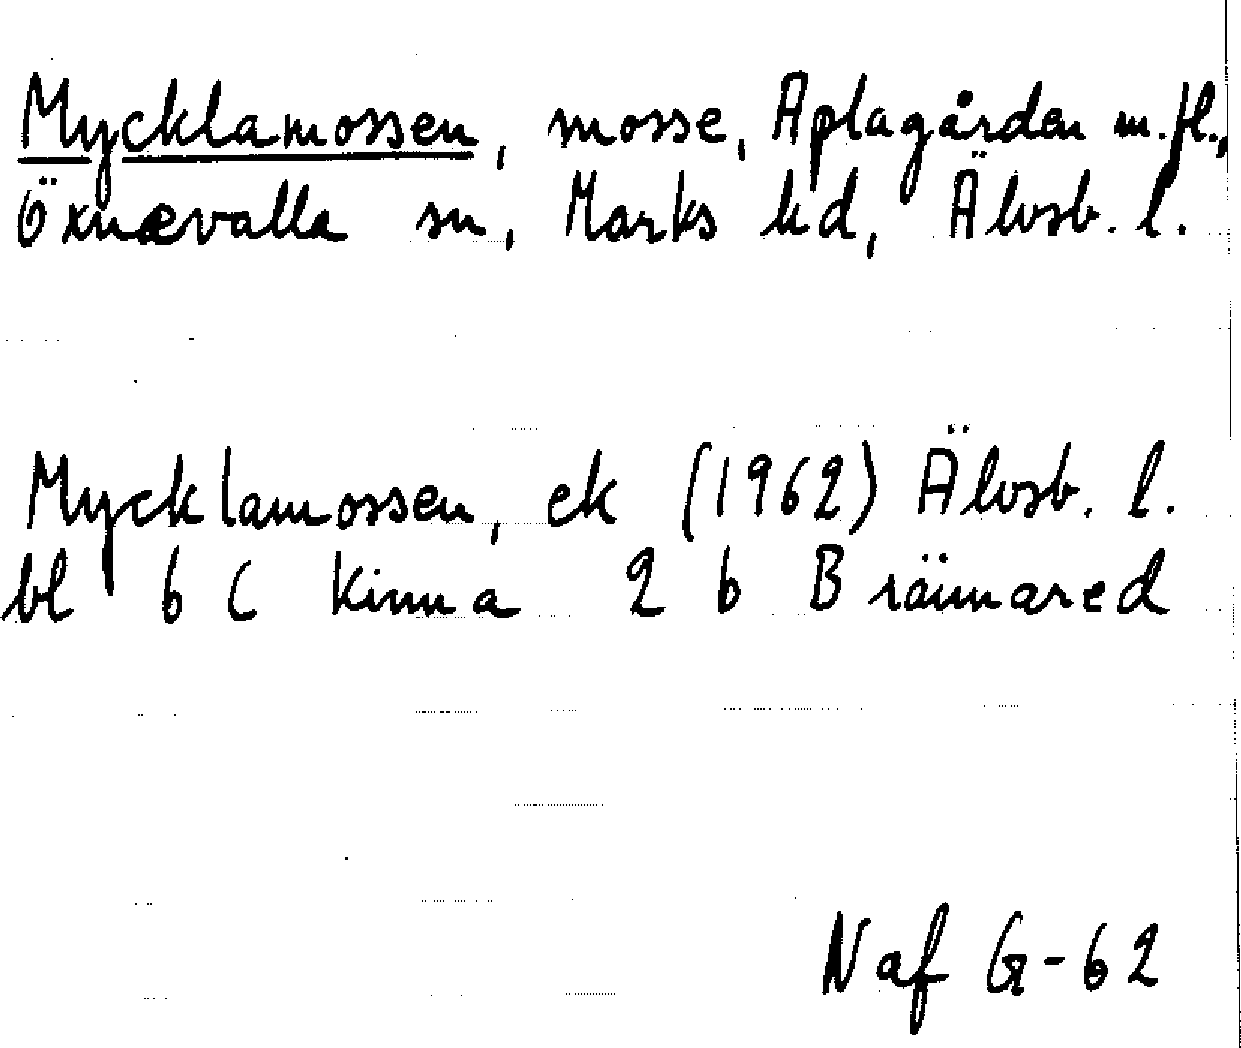 Mycklamossen, mosse, Aplagården m.fl.,
Öxnævalla sn, Marks hd, Älvsb. l.
Mycklamossen, ek (1962) Älvsb. l.
bl 6 C Kinna 2 b Brännared
Naf G-62